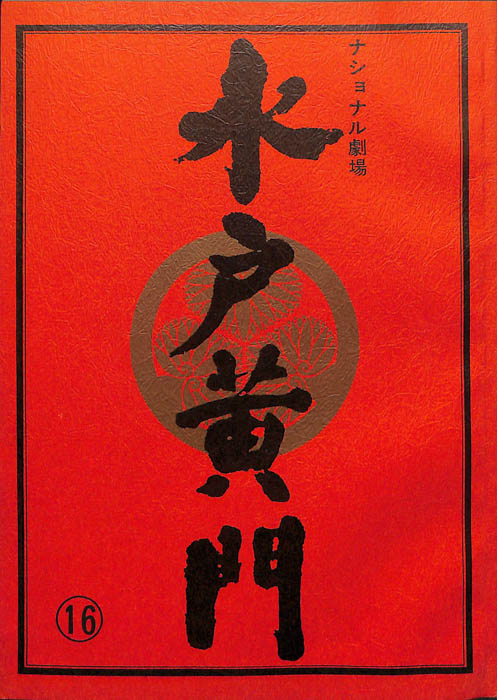 ナショナル劇場
水戸黄門
⑯